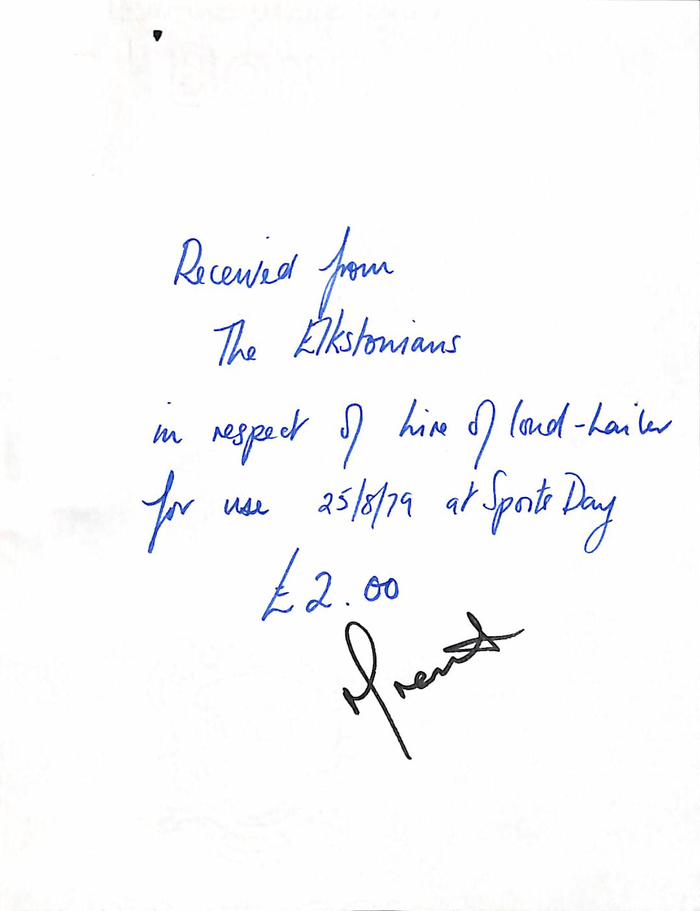 Received from
The Elkstonians
in respect of hire of loud-hailer
for use 25/8/79 at Sports Day
£2.00